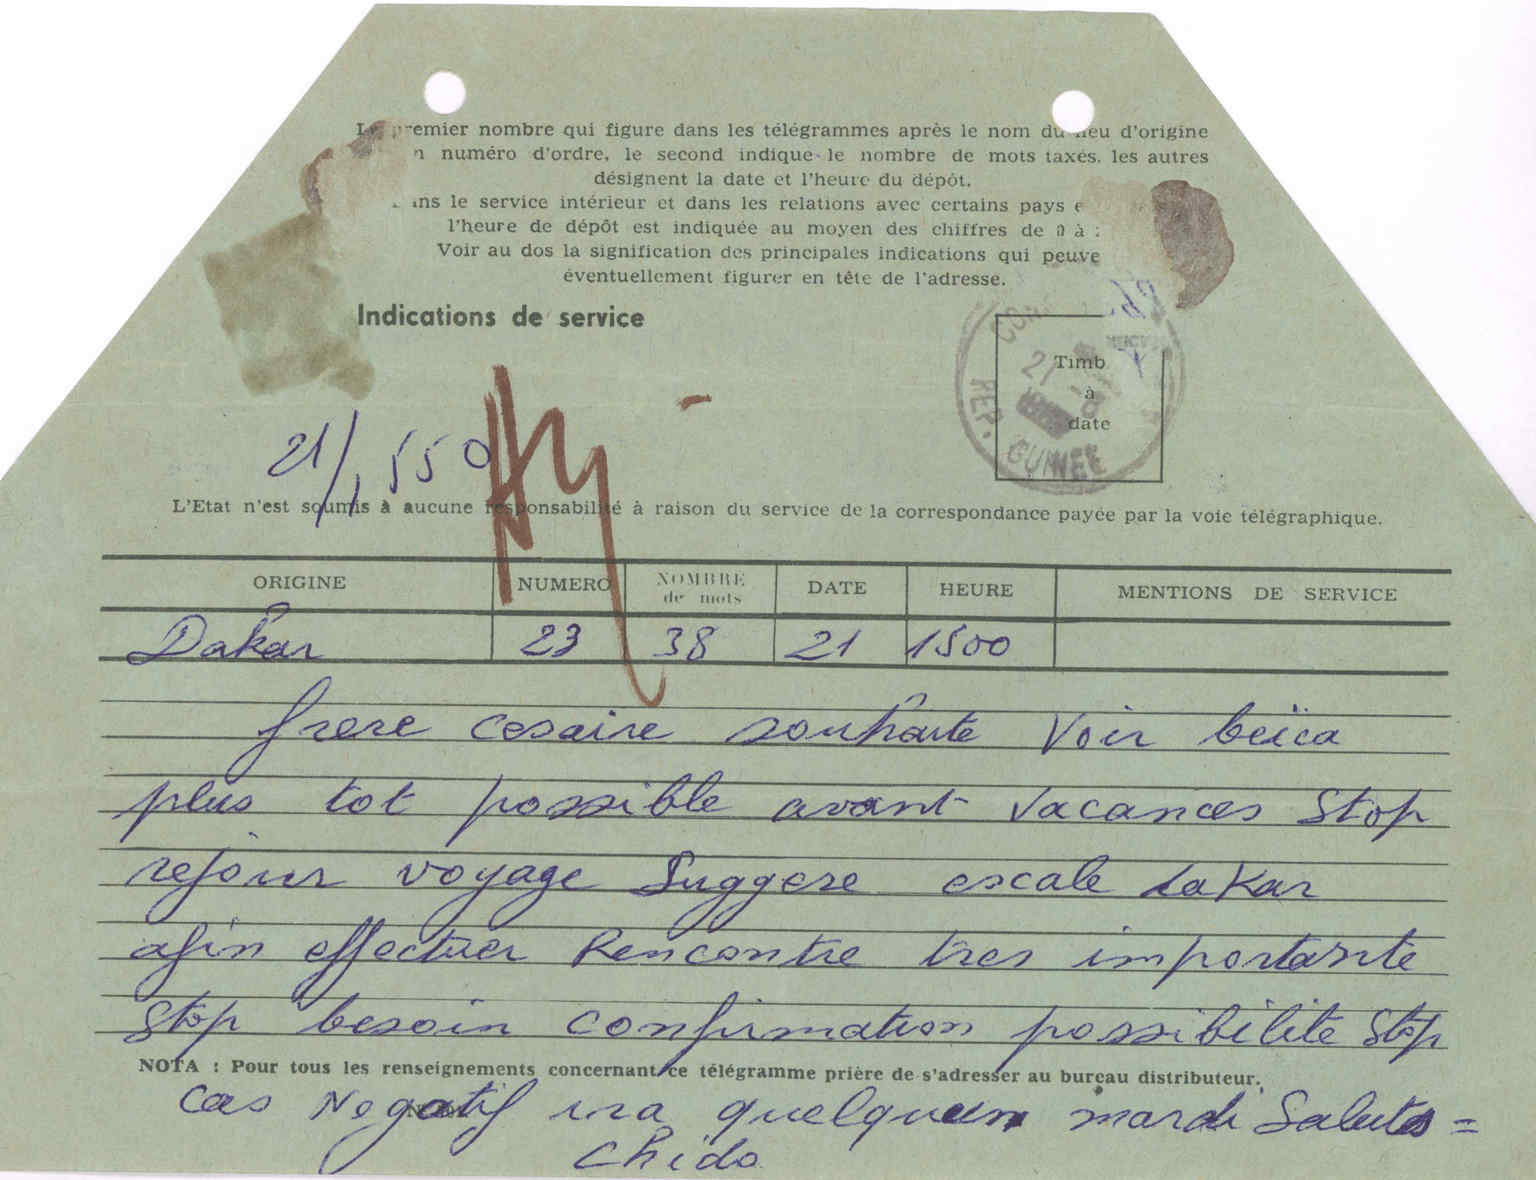 premier nombre qui figure dans les télégrammes après le nom du lieu d'origine
numéro d'ordre, le second indique le nombre de mots taxés. les autres
désignent la date et l'heure du dépôt.
le service intérieur et dans les relations avec certains pays
l'heure de dépôt est indiquée au moyen des chiffres de 0 à
Voir au dos la signification des principales indications qui
éventuellement figurer en tête de l'adresse.
Indications de service
Timb
à
date
21
REP. GUINEE
21/1550
L'Etat n'est soumis à aucune responsabilité à raison du service de la correspondance payée par la voie télégraphique.
ORIGINE NUMERO NOMBRE de mots DATE HEURE MENTIONS DE SERVICE
Dakar 23 38 21 1500
frere cesaire souhaite voir beïca
plus tot possible avant vacances stop
rejour voyage suggere escale dakar
afin effectuer Rencontre tres importante
stop besoin confirmation possibilite stop
NOTA : Pour tous les renseignements concernant ce télégramme prière de s'adresser au bureau distributeur.
cas Negatif ira quelquun mardi Saluts =
chido